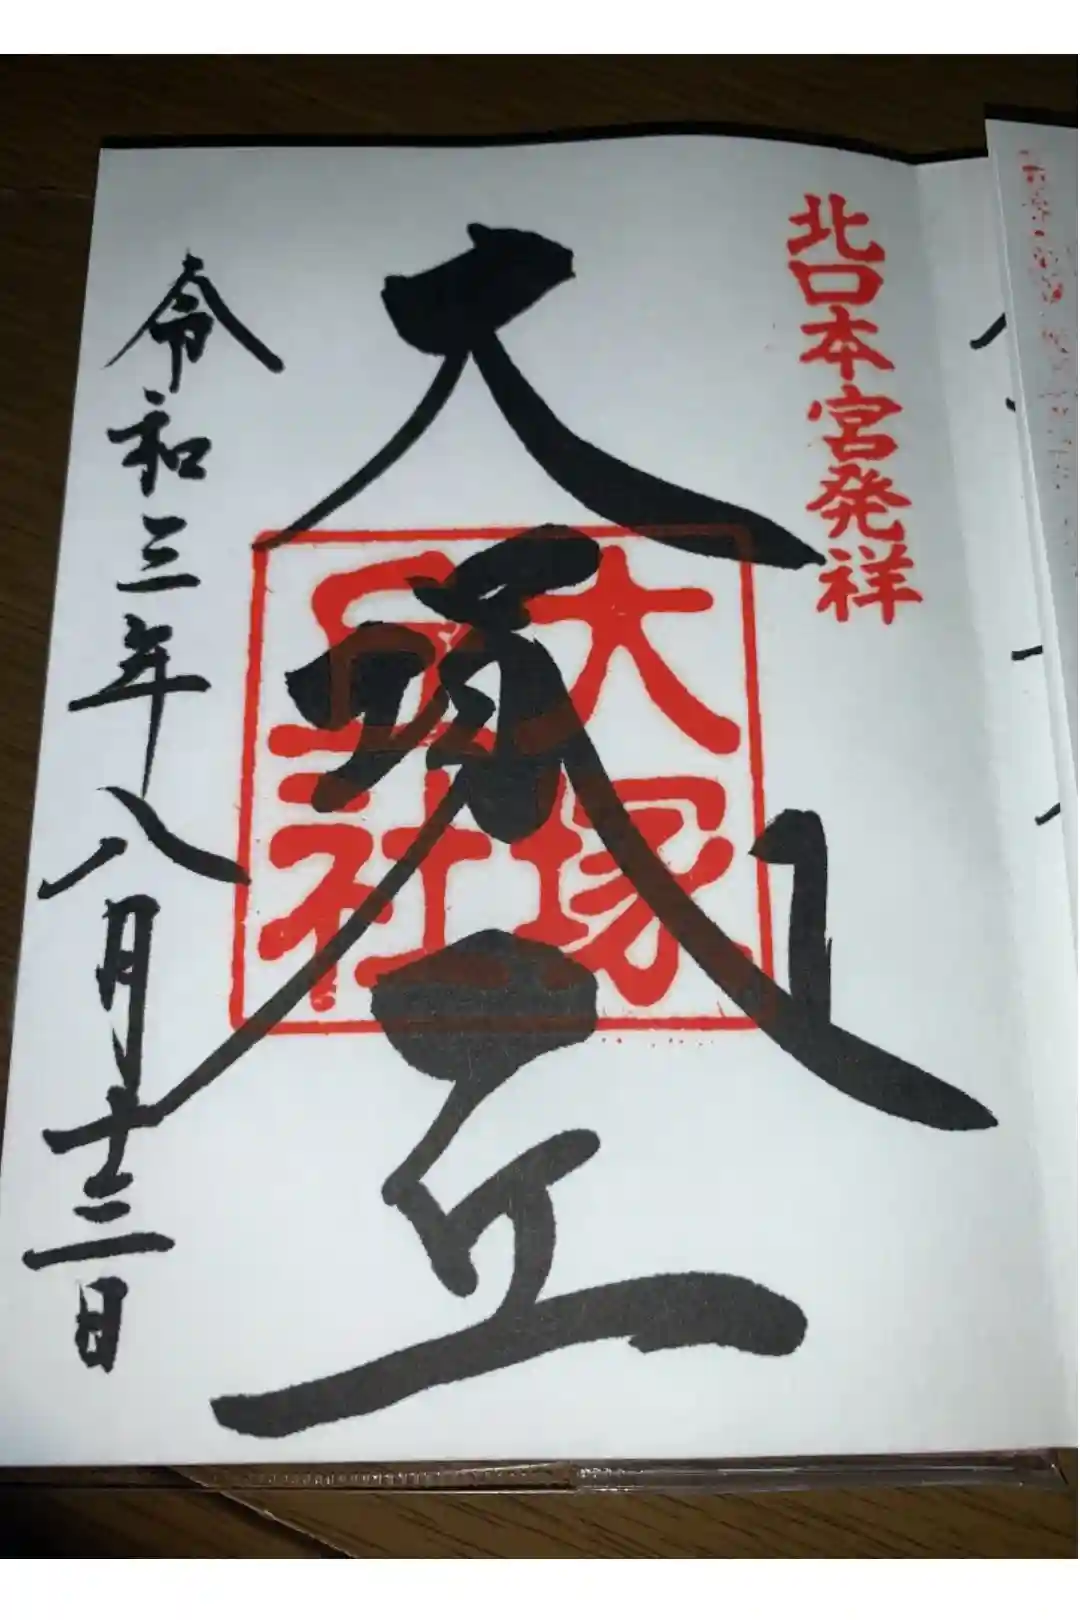 北口本宮発祥
大塚丘
大塚
丘社
令和三年八月十三日